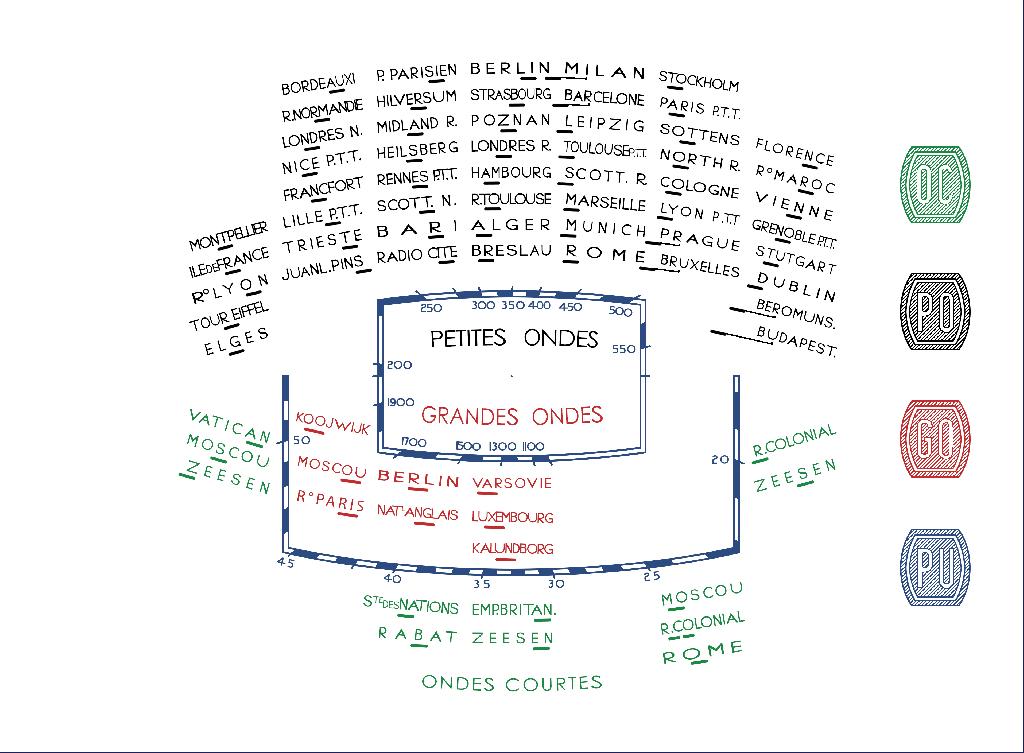 BORDEAUX
P. PARISIEN
BERLIN MILAN
STOCKHOLM
R.NORMANDIE
HILVERSUM
STRASBOURG BARCELONE
PARIS P.T.T.
LONDRES N.
MIDLAND R.
POZNAN LEIPZIG
SOTTENS
FLORENCE
NICE P.T.T.
HEILSBERG
LONDRES R. TOULOUSE P.T.T.
NORTH R.
Rº MAROC
FRANCFORT
RENNES P.T.T.
HAMBOURG SCOTT. R
COLOGNE
VIENNE
LILLE P.T.T.
SCOTT. N.
R.TOULOUSE MARSEILLE
LYON P.T.T
GRENOBLE P.T.T.
MONTPELLIER
TRIESTE
BARI
ALGER MUNICH
PRAGUE
STUTGART
ILE DE FRANCE
JUANL.PINS
RADIO CITE
BRESLAU ROME
BRUXELLES
DUBLIN
Rº LYON
BEROMUNS.
TOUR EIFFEL
BUDAPEST.
ELGES
250 300 350 400 450 500
PETITES ONDES
550
200
1900
GRANDES ONDES
1700 1600 1300 1100
VATICAN
MOSCOU
ZEESEN
KOOJWIJK
50
MOSCOU
BERLIN
VARSOVIE
Rº PARIS
NATˡ ANGLAIS
LUXEMBOURG
KALUNDBORG
20
R.COLONIAL
ZEESEN
45 40 35 30 25
STE DES NATIONS
EMP.BRITAN.
MOSCOU
RABAT
ZEESEN
R.COLONIAL
ROME
ONDES COURTES
OC
PO
GO
PU